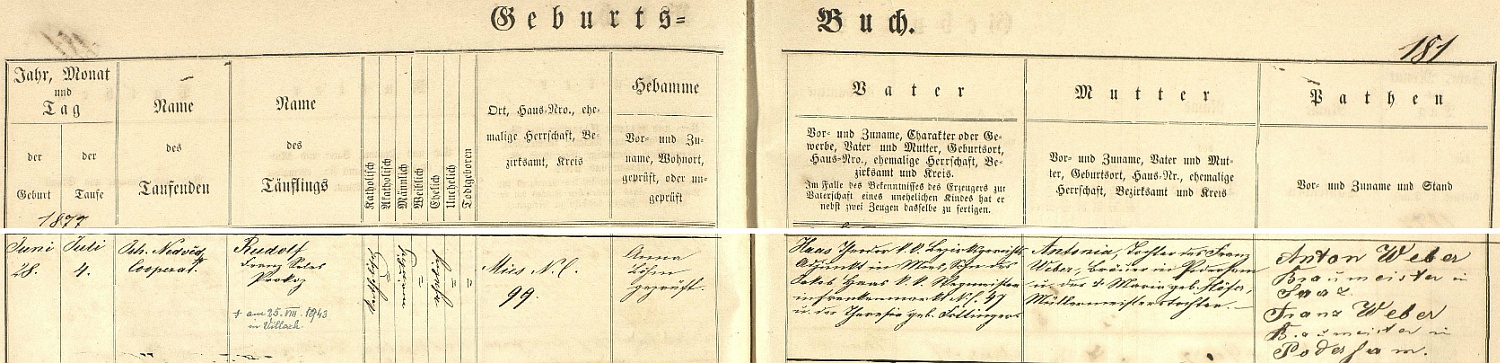 Geburts=
Buch.
181
Jahr, Monat
und
Tag
der
Geburt
der
Taufe
Name
des
Taufenden
Name
des
Täuflings
Katholisch
Akatholisch
Männlich
Weiblich
Ehelich
Unehelich
Todtgeboren
Ort, Haus-Nro., ehe-
malige Herrschaft, Be-
zirksamt, Kreis
Hebamme
Vor- und Zu-
name, Wohnort,
geprüft, oder un-
geprüft
Vater
Vor- und Zuname, Charakter oder Ge-
werbe, Vater und Mutter, Geburtsort,
Haus-Nro., ehemalige Herrschaft, Be-
zirksamt und Kreis.
Im Falle des Bekenntnisses des Erzeugers zur
Vaterschaft eines unehelichen Kindes hat er
nebst zwei Zeugen dasselbe zu fertigen.
Mutter
Vor- und Zuname, Vater und Mut-
ter, Geburtsort, Haus-Nr., ehemalige
Herrschaft, Bezirksamt und Kreis
Pathen
Vor- und Zuname und Stand
1877
Juni
28.
Juli
4.
Cooperat.
Rudolf
Franz
† am 25. VIII. 1943
in Villach
Mies N. C.
99.
Anna
Böhm
geprüft.
Haas Theodor k. k. Bezirksgerichts
Adjunkt in Mies, Sohn des
Jakob Haas k. k. Wegmeister
in Frankenmarkt N. C. 47
u. der Theresia geb.
Antonia, Tochter des Franz
Weber, Bräuer in Podersam
u. der † Maria geb.
Müllermeisterstochter.
Anton Weber
Braumeister in
Saaz.
Franz Weber
Braumeister in
Podersam.